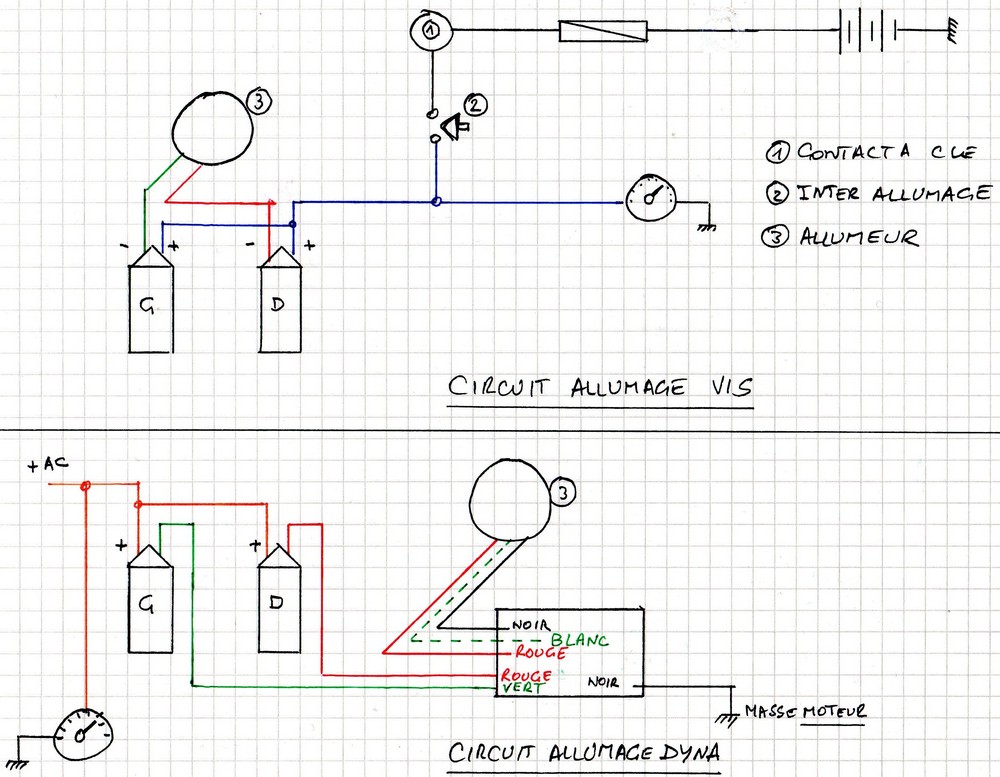 1
2
3
- +
- +
G
D
1 CONTACT A CLE
2 INTER ALLUMAGE
3 ALLUMEUR
CIRCUIT ALLUMAGE VIS
+ AC
3
+
+
G
D
NOIR
BLANC
ROUGE
ROUGE
VERT
NOIR
MASSE MOTEUR
CIRCUIT ALLUMAGE DYNA